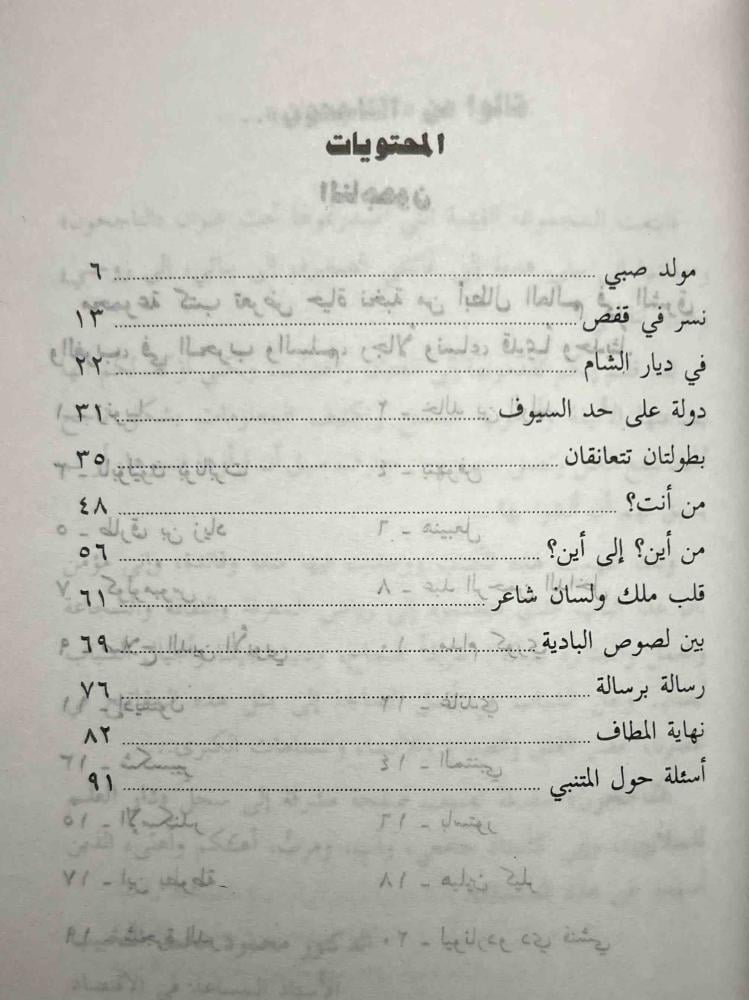 المحتويات
مولد صبي ........ ٦
نسر في قفص ........ ١٣
في ديار الشام ........ ٢٢
دولة على حد السيوف ........ ٣١
بطولتان تتعانقان ........ ٣٥
من أنت؟ ........ ٤٨
من أين؟ إلى أين؟ ........ ٥٦
قلب ملك ولسان شاعر ........ ٦١
بين لصوص البادية ........ ٦٩
رسالة برسالة ........ ٧٦
نهاية المطاف ........ ٨٢
أسئلة حول المتنبي ........ ٩١